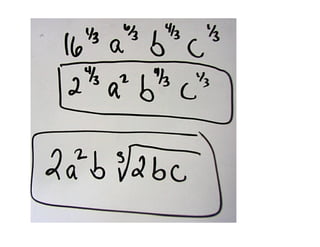 16^{1/3} a^{6/3} b^{4/3} c^{1/3}
2^{4/3} a^2 b^{4/3} c^{1/3}
2a^2b ∛(2bc)